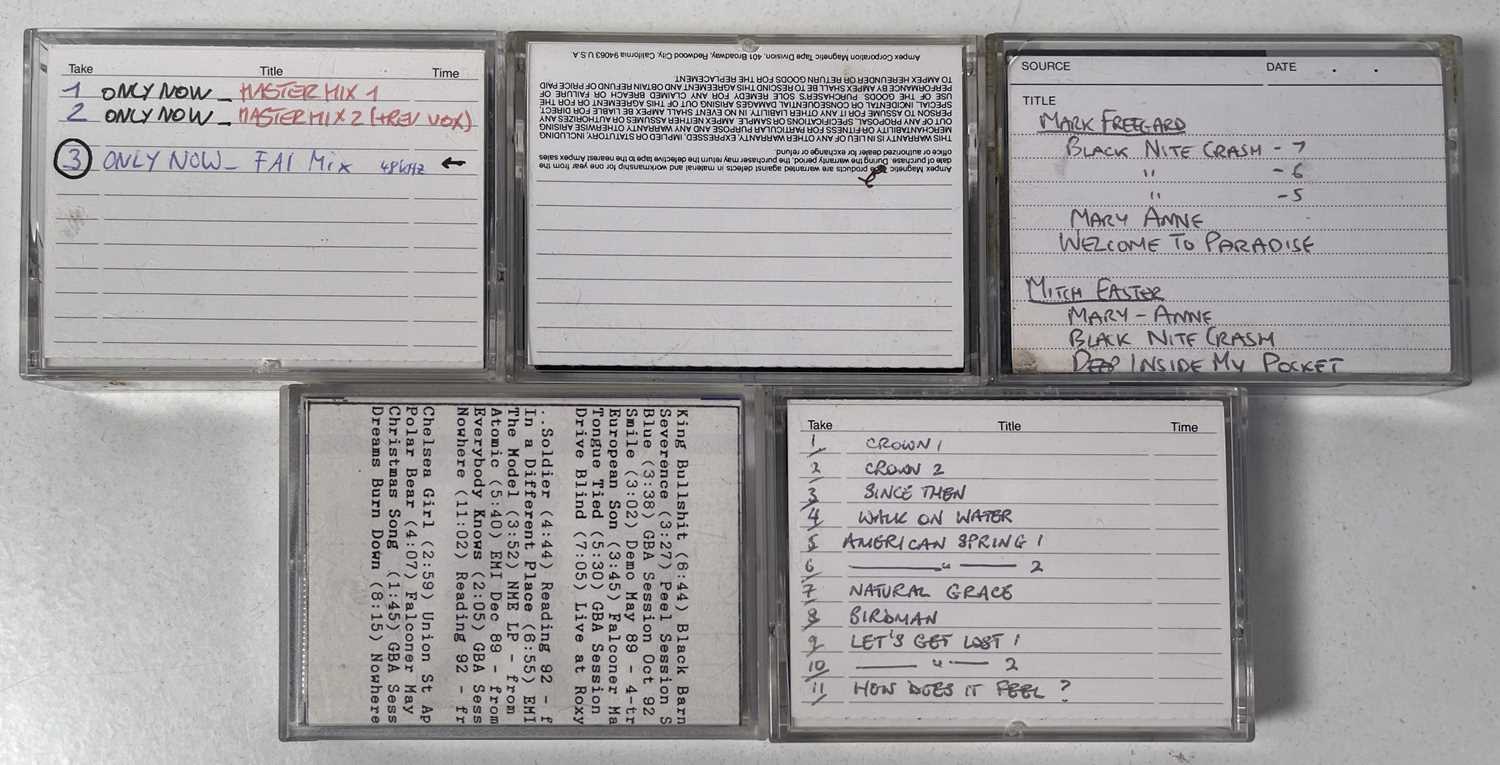 Take Title Time
1 ONLY NOW _ MASTER MIX 1
2 ONLY NOW _ MASTER MIX 2 (+REV VOX)
3 ONLY NOW _ FAI Mix 48kHz ←
Ampex Magnetic products are warranted against defects in material and workmanship for one year from the
date of purchase. During the warranty period, the purchaser may return the defective tape to the nearest Ampex sales
office or authorized dealer for exchange or refund.
THIS WARRANTY IS IN LIEU OF ANY OTHER WARRANTY, EXPRESSED, IMPLIED OR STATUTORY, INCLUDING
MERCHANTABILITY OR FITNESS FOR PARTICULAR PURPOSE AND ANY WARRANTY OTHERWISE ARISING
OUT OF ANY PROPOSAL, SPECIFICATIONS OR SAMPLE. AMPEX NEITHER ASSUMES OR AUTHORIZES ANY
PERSON TO ASSUME FOR IT ANY OTHER LIABILITY. IN NO EVENT SHALL AMPEX BE LIABLE FOR DIRECT,
SPECIAL, INCIDENTAL OR CONSEQUENTIAL DAMAGES ARISING OUT OF THIS AGREEMENT OR FOR THE
USE OF THE GOODS. PURCHASER'S SOLE REMEDY FOR ANY CLAIMED BREACH OR FAILURE OF
PERFORMANCE BY AMPEX SHALL BE TO RESCIND THIS AGREEMENT AND OBTAIN REFUND OF PRICE PAID
TO AMPEX HEREUNDER OR RETURN GOODS FOR THE REPLACEMENT.
Ampex Corporation Magnetic Tape Division, 401 Broadway, Redwood City, California 94063 U.S.A
SOURCE DATE
TITLE
MARK FREEGARD
BLACK NITE CRASH - 7
" - 6
" - 5
MARY ANNE
WELCOME TO PARADISE
MITCH EASTER
MARY - ANNE
BLACK NITE CRASH
DEEP INSIDE MY POCKET
King Bullshit (6:44) Black Barn
Severence (3:27) Peel Session S
Blue (3:38) GBA Session Oct 92
Smile (3:02) Demo May 89 - 4-tr
European Son (3:45) Falconer Ma
Tongue Tied (5:30) GBA Session
Drive Blind (7:05) Live at Roxy
..Soldier (4:44) Reading 92 - f
In a Different Place (6:55) EMI
The Model (3:52) NME LP - from
Atomic (5:40) EMI Dec 89 - from
Everybody Knows (2:05) GBA Sess
Nowhere (11:02) Reading 92 - fr
Chelsea Girl (2:59) Union St Ap
Polar Bear (4:07) Falconer May
Christmas Song (1:45) GBA Sess
Dreams Burn Down (8:15) Nowhere
Take Title Time
1 CROWN 1
2 CROWN 2
3 SINCE THEN
4 WALK ON WATER
5 AMERICAN SPRING 1
6 —— " —— 2
7 NATURAL GRACE
8 BIRDMAN
9 LET'S GET LOST 1
10 —— " —— 2
11 HOW DOES IT FEEL ?